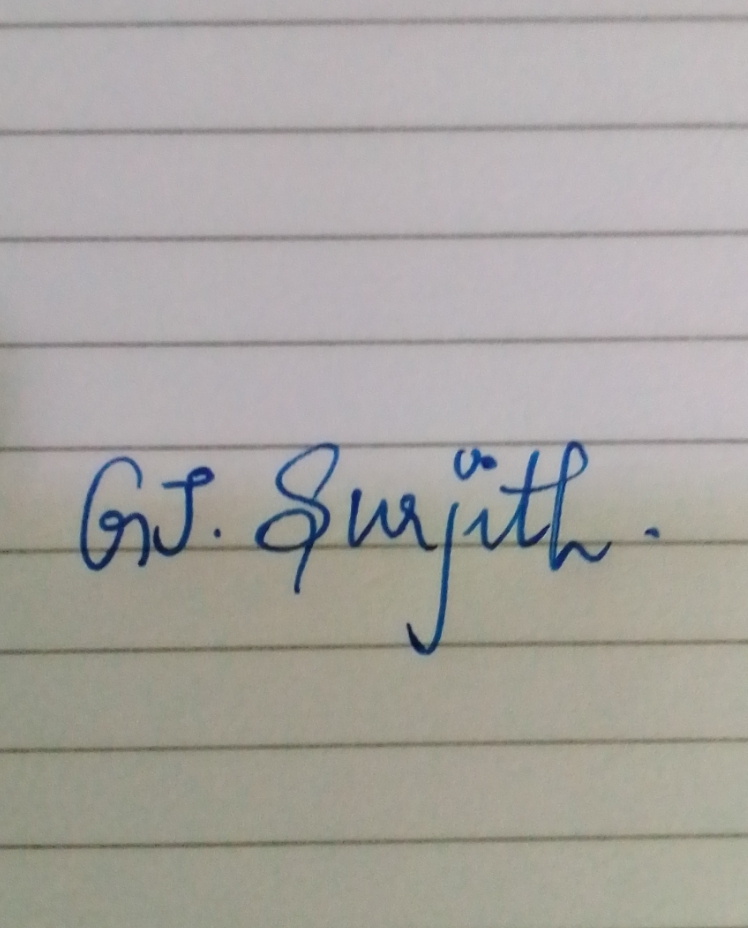 GJ. Surjith.